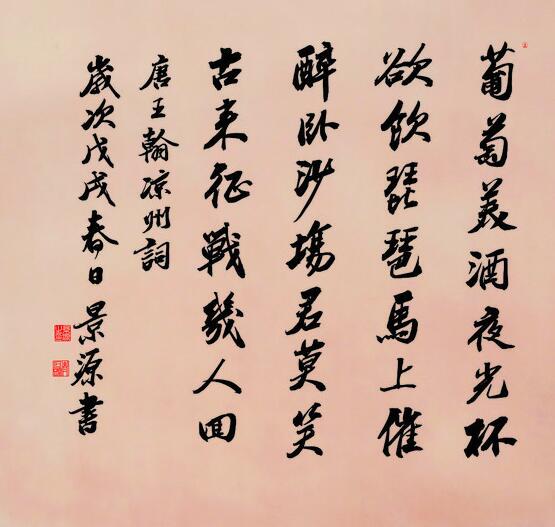 葡萄美酒夜光杯
欲飲琵琶馬上催
醉卧沙場君莫笑
古来征戰幾人回
唐王翰凉州詞
歲次戊戌春日景源書